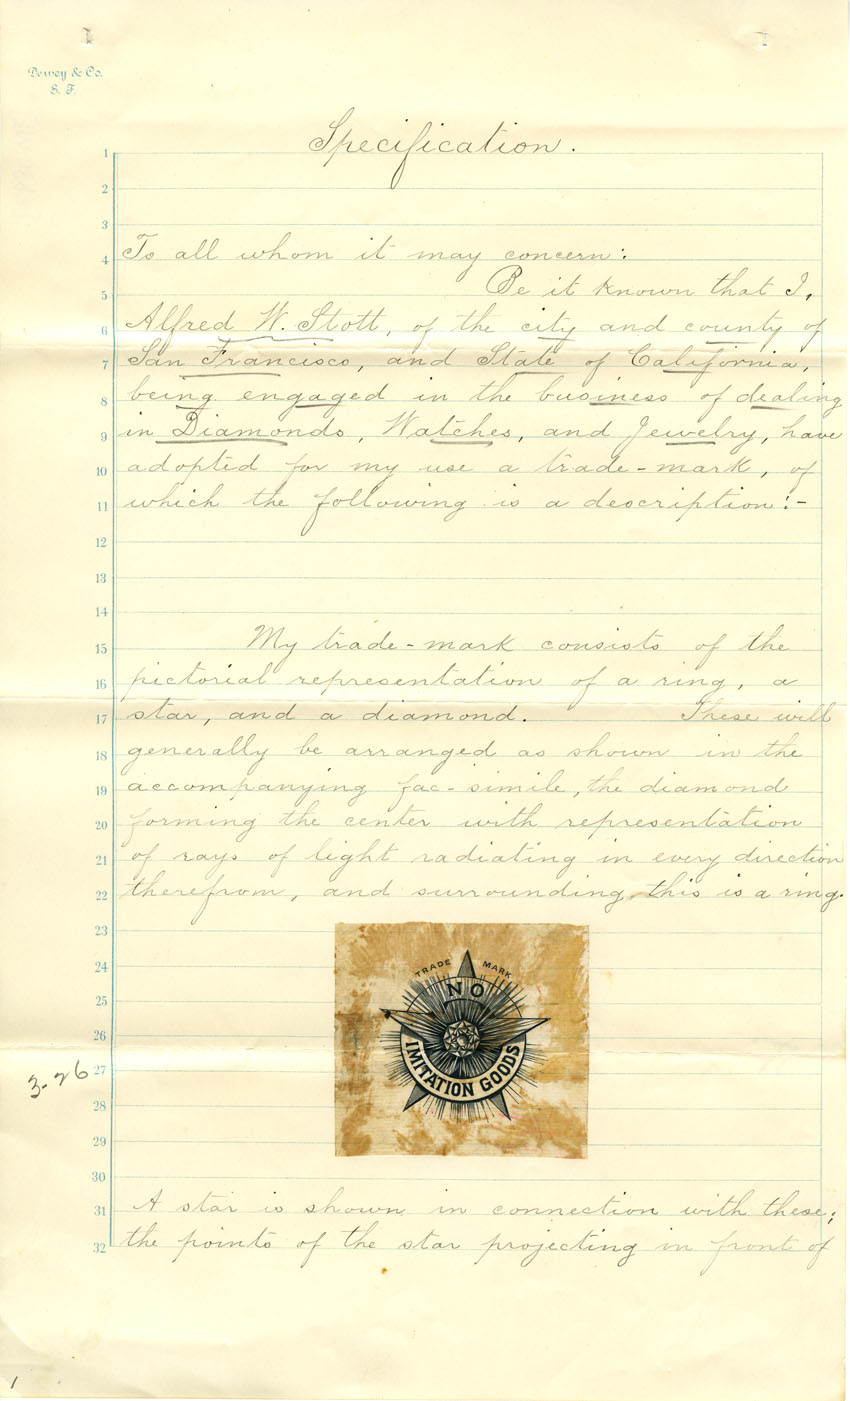 Dewey & Co.
S. F.
Specification.
1
2
3
4 To all whom it may concern:
5 Be it known that I,
6 Alfred W. Stott, of the city and county of
7 San Francisco, and State of California,
8 being engaged in the business of dealing
9 in Diamonds, Watches, and Jewelry, have
10 adopted for my use a trade-mark, of
11 which the following is a description:-
12
13
14
15 My trade-mark consists of the
16 pictorial representation of a ring, a
17 star, and a diamond. These will
18 generally be arranged as shown in the
19 accompanying fac-simile, the diamond
20 forming the center with representation
21 of rays of light radiating in every direction
22 therefrom, and surrounding this is a ring.
23
24 TRADE MARK
25 NO
26 IMITATION GOODS
3-26 27
28
29
30
31 A star is shown in connection with these;
32 the points of the star projecting in front of
1